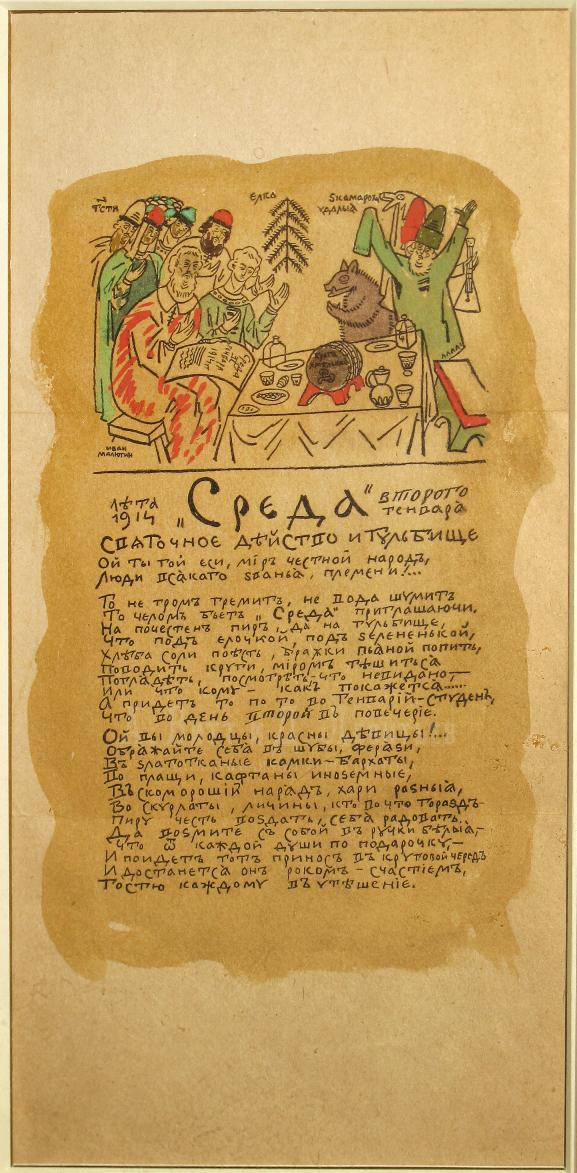 Гости
Елка
Sкаморохи
удалыа
Среда
2 Генваря
1914 г.
Брага
хмельная
Иван
Малютин
Лѣта
1914
„Среда“
второго
генваря
Святочное дѣйство и гульбище
Ой ты гой еси, мiръ честной народъ,
Люди всакаго sваньа, племени!...
То не громъ гремитъ, не вода шумитъ
То челомъ бьетъ „Среда“ приглашаючи.
На почестенъ пиръ, да на гульбище,
Что подъ елочкой, подъ sелененькой,
Хлѣба соли поѣсть, бражки пьаной попить,
Поводить круги, мiромъ тѣшиться
Поглядѣть, посмотрѣть-что невидано,—
Или что кому — какъ покажетса.....
А придетъ то по то во Генварiй-студень,
Что во день второй въ повечерiе.
Ой вы молодцы, красны дѣвицы!...
Ображайте себя въ шубы, ферязи,
Въ sлатотканые камки-бархаты,
Во плащи, кафтаны иноsемные,
Въ скоморошiй нарядъ, хари раsныіа,
Во скурлаты, личины, кто во что гораздъ
Пиру честь воsдать, себя радовать.
Да воsмите съ собой въ ручки бѣлыіа,—
Что ѿ каждой души по подарочку,—
И поидетъ тотъ приносъ въ круговой чередъ
И достанется онъ рокомъ - счастiемъ,
Гостю каждому въ утѣшенiе.